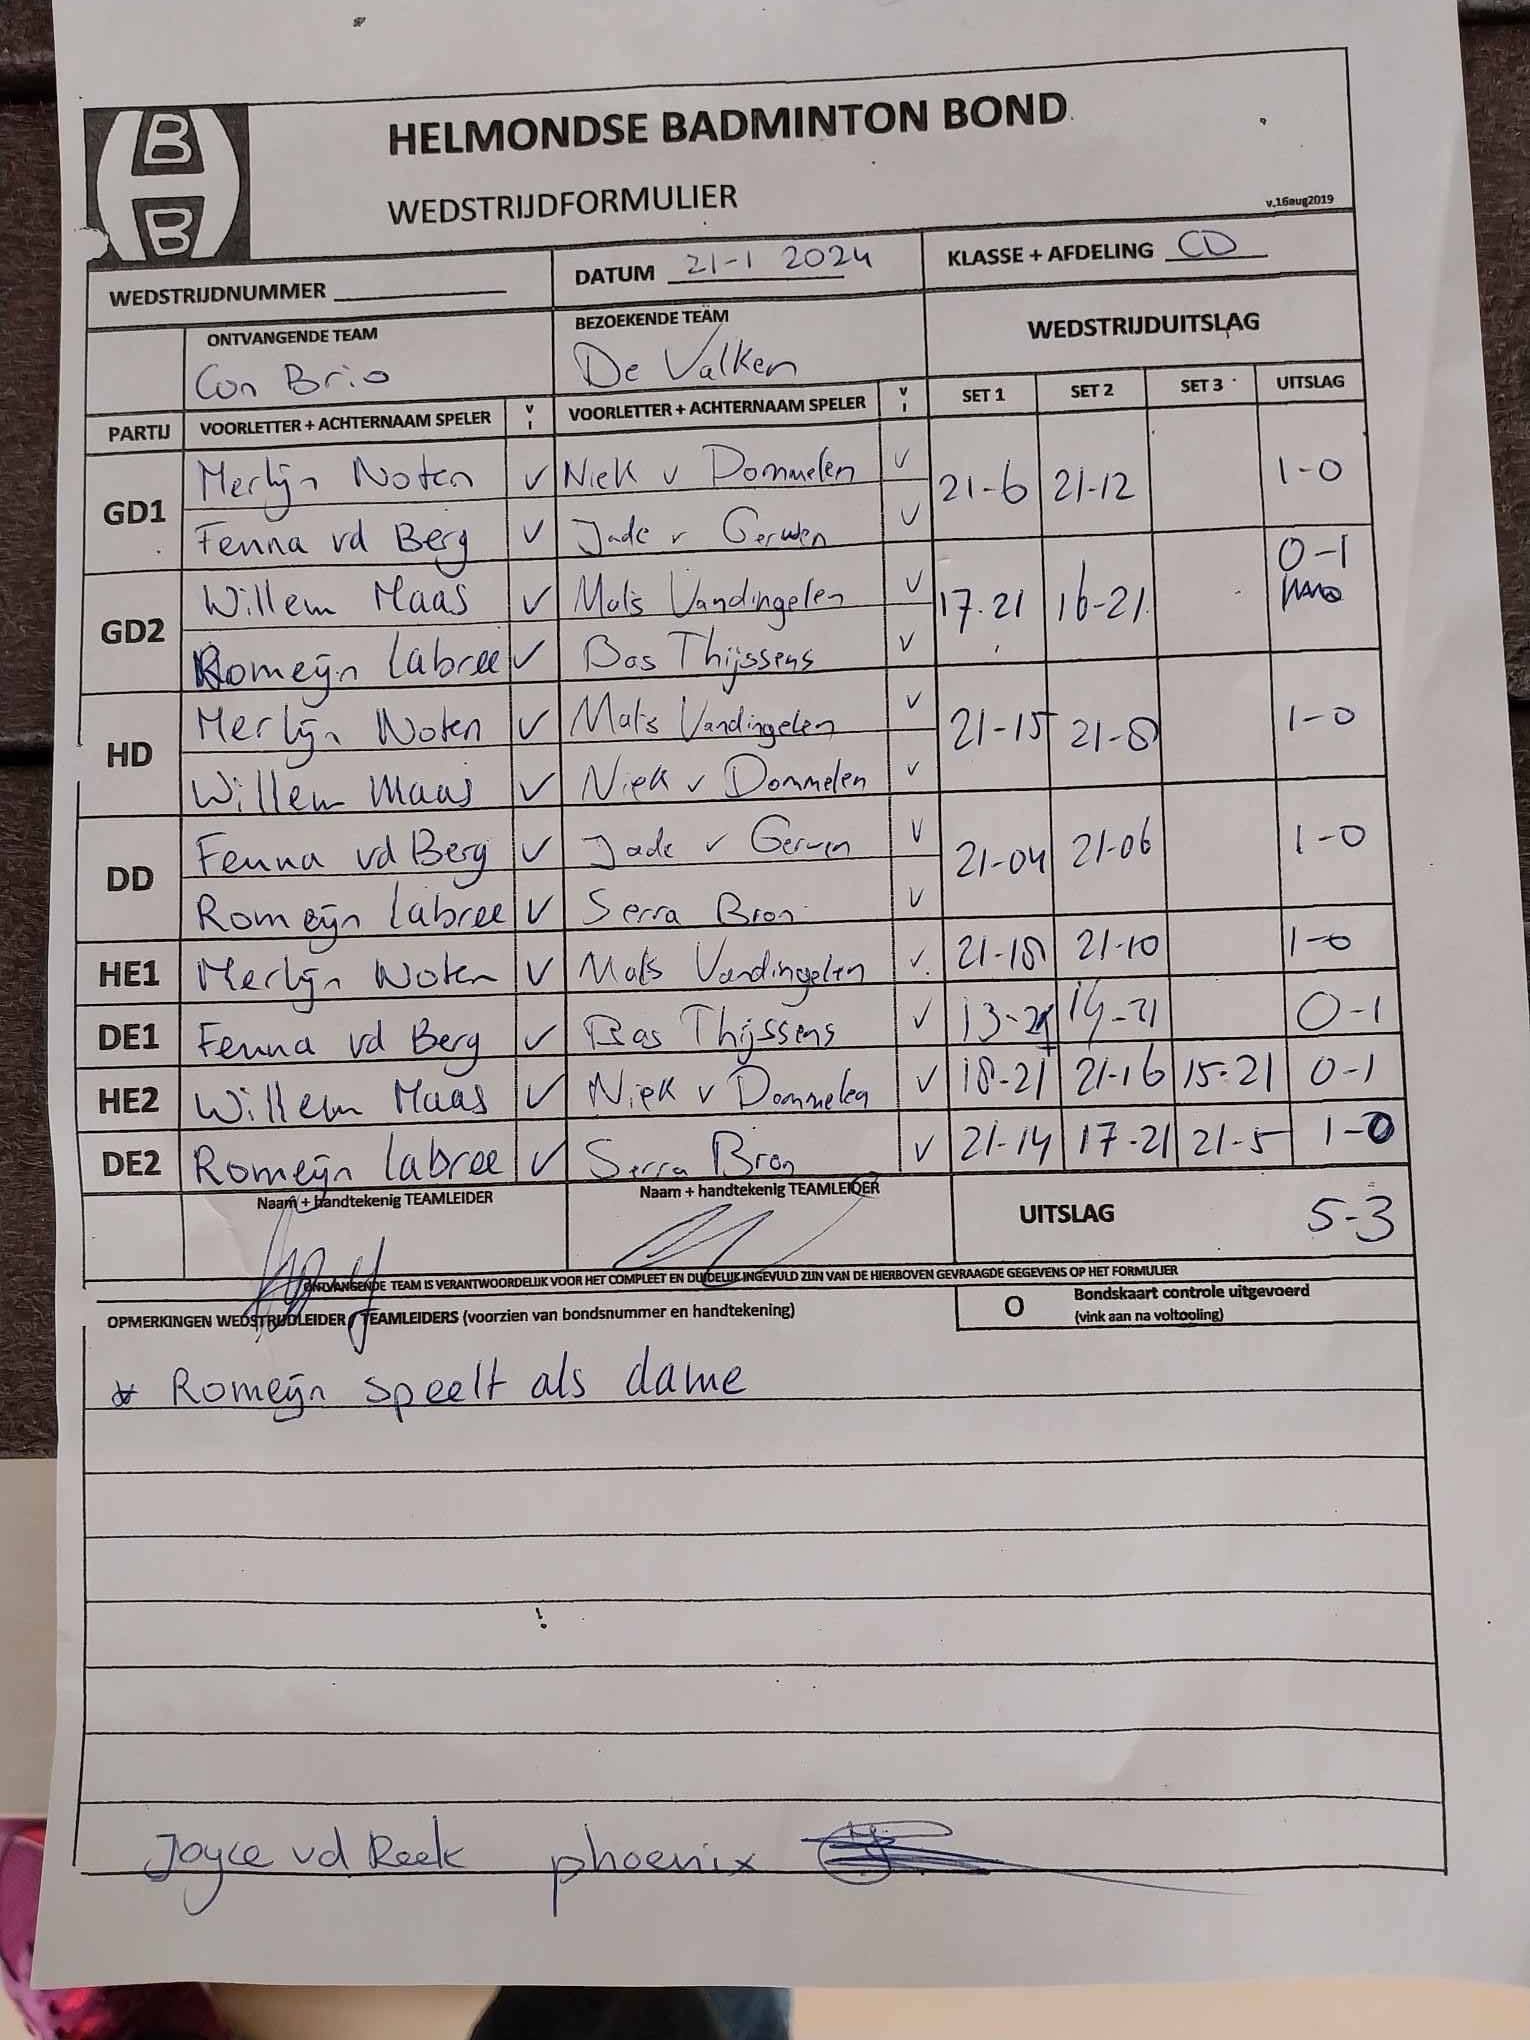 B
B
HELMONDSE BADMINTON BOND
WEDSTRIJDFORMULIER
v.16aug2019
WEDSTRIJDNUMMER
DATUM 21-1 2024
KLASSE + AFDELING CD
ONTVANGENDE TEAM
BEZOEKENDE TEAM
WEDSTRIJDUITSLAG
Con Brio
De Valken
PARTIJ VOORLETTER + ACHTERNAAM SPELER V I VOORLETTER + ACHTERNAAM SPELER V I SET 1 SET 2 SET 3 UITSLAG
GD1 Merlijn Noten V Niek v Dommelen V 21-6 21-12 1-0
Fenna vd Berg V Jade v Gerwen V
GD2 Willem Maas V Mats Vandingelen V 17-21 16-21 0-1
Romeijn Labree V Bas Thijssens V
HD Merlijn Noten V Mats Vandingelen V 21-15 21-8 1-0
Willem Maas V Niek v Dommelen V
DD Fenna vd Berg V Jade v Gerwen V 21-04 21-06 1-0
Romeijn Labree V Serra Bron V
HE1 Merlijn Noten V Mats Vandingelen V 21-18 21-10 1-0
DE1 Fenna vd Berg V Bas Thijssens V 13-21 14-21 0-1
HE2 Willem Maas V Niek v Dommelen V 18-21 21-16 15-21 0-1
DE2 Romeijn Labree V Serra Bron V 21-14 17-21 21-5 1-0
Naam + handtekenig TEAMLEIDER
Naam + handtekenig TEAMLEIDER
UITSLAG 5-3
ONTVANGENDE TEAM IS VERANTWOORDELIJK VOOR HET COMPLEET EN DUIDELIJK INGEVULD ZIJN VAN DE HIERBOVEN GEVRAAGDE GEGEVENS OP HET FORMULIER
OPMERKINGEN WEDSTRIJDLEIDER / TEAMLEIDERS (voorzien van bondsnummer en handtekening)
O Bondskaart controle uitgevoerd
(vink aan na voltooling)
* Romeijn speelt als dame
Joyce vd Reek phoenix